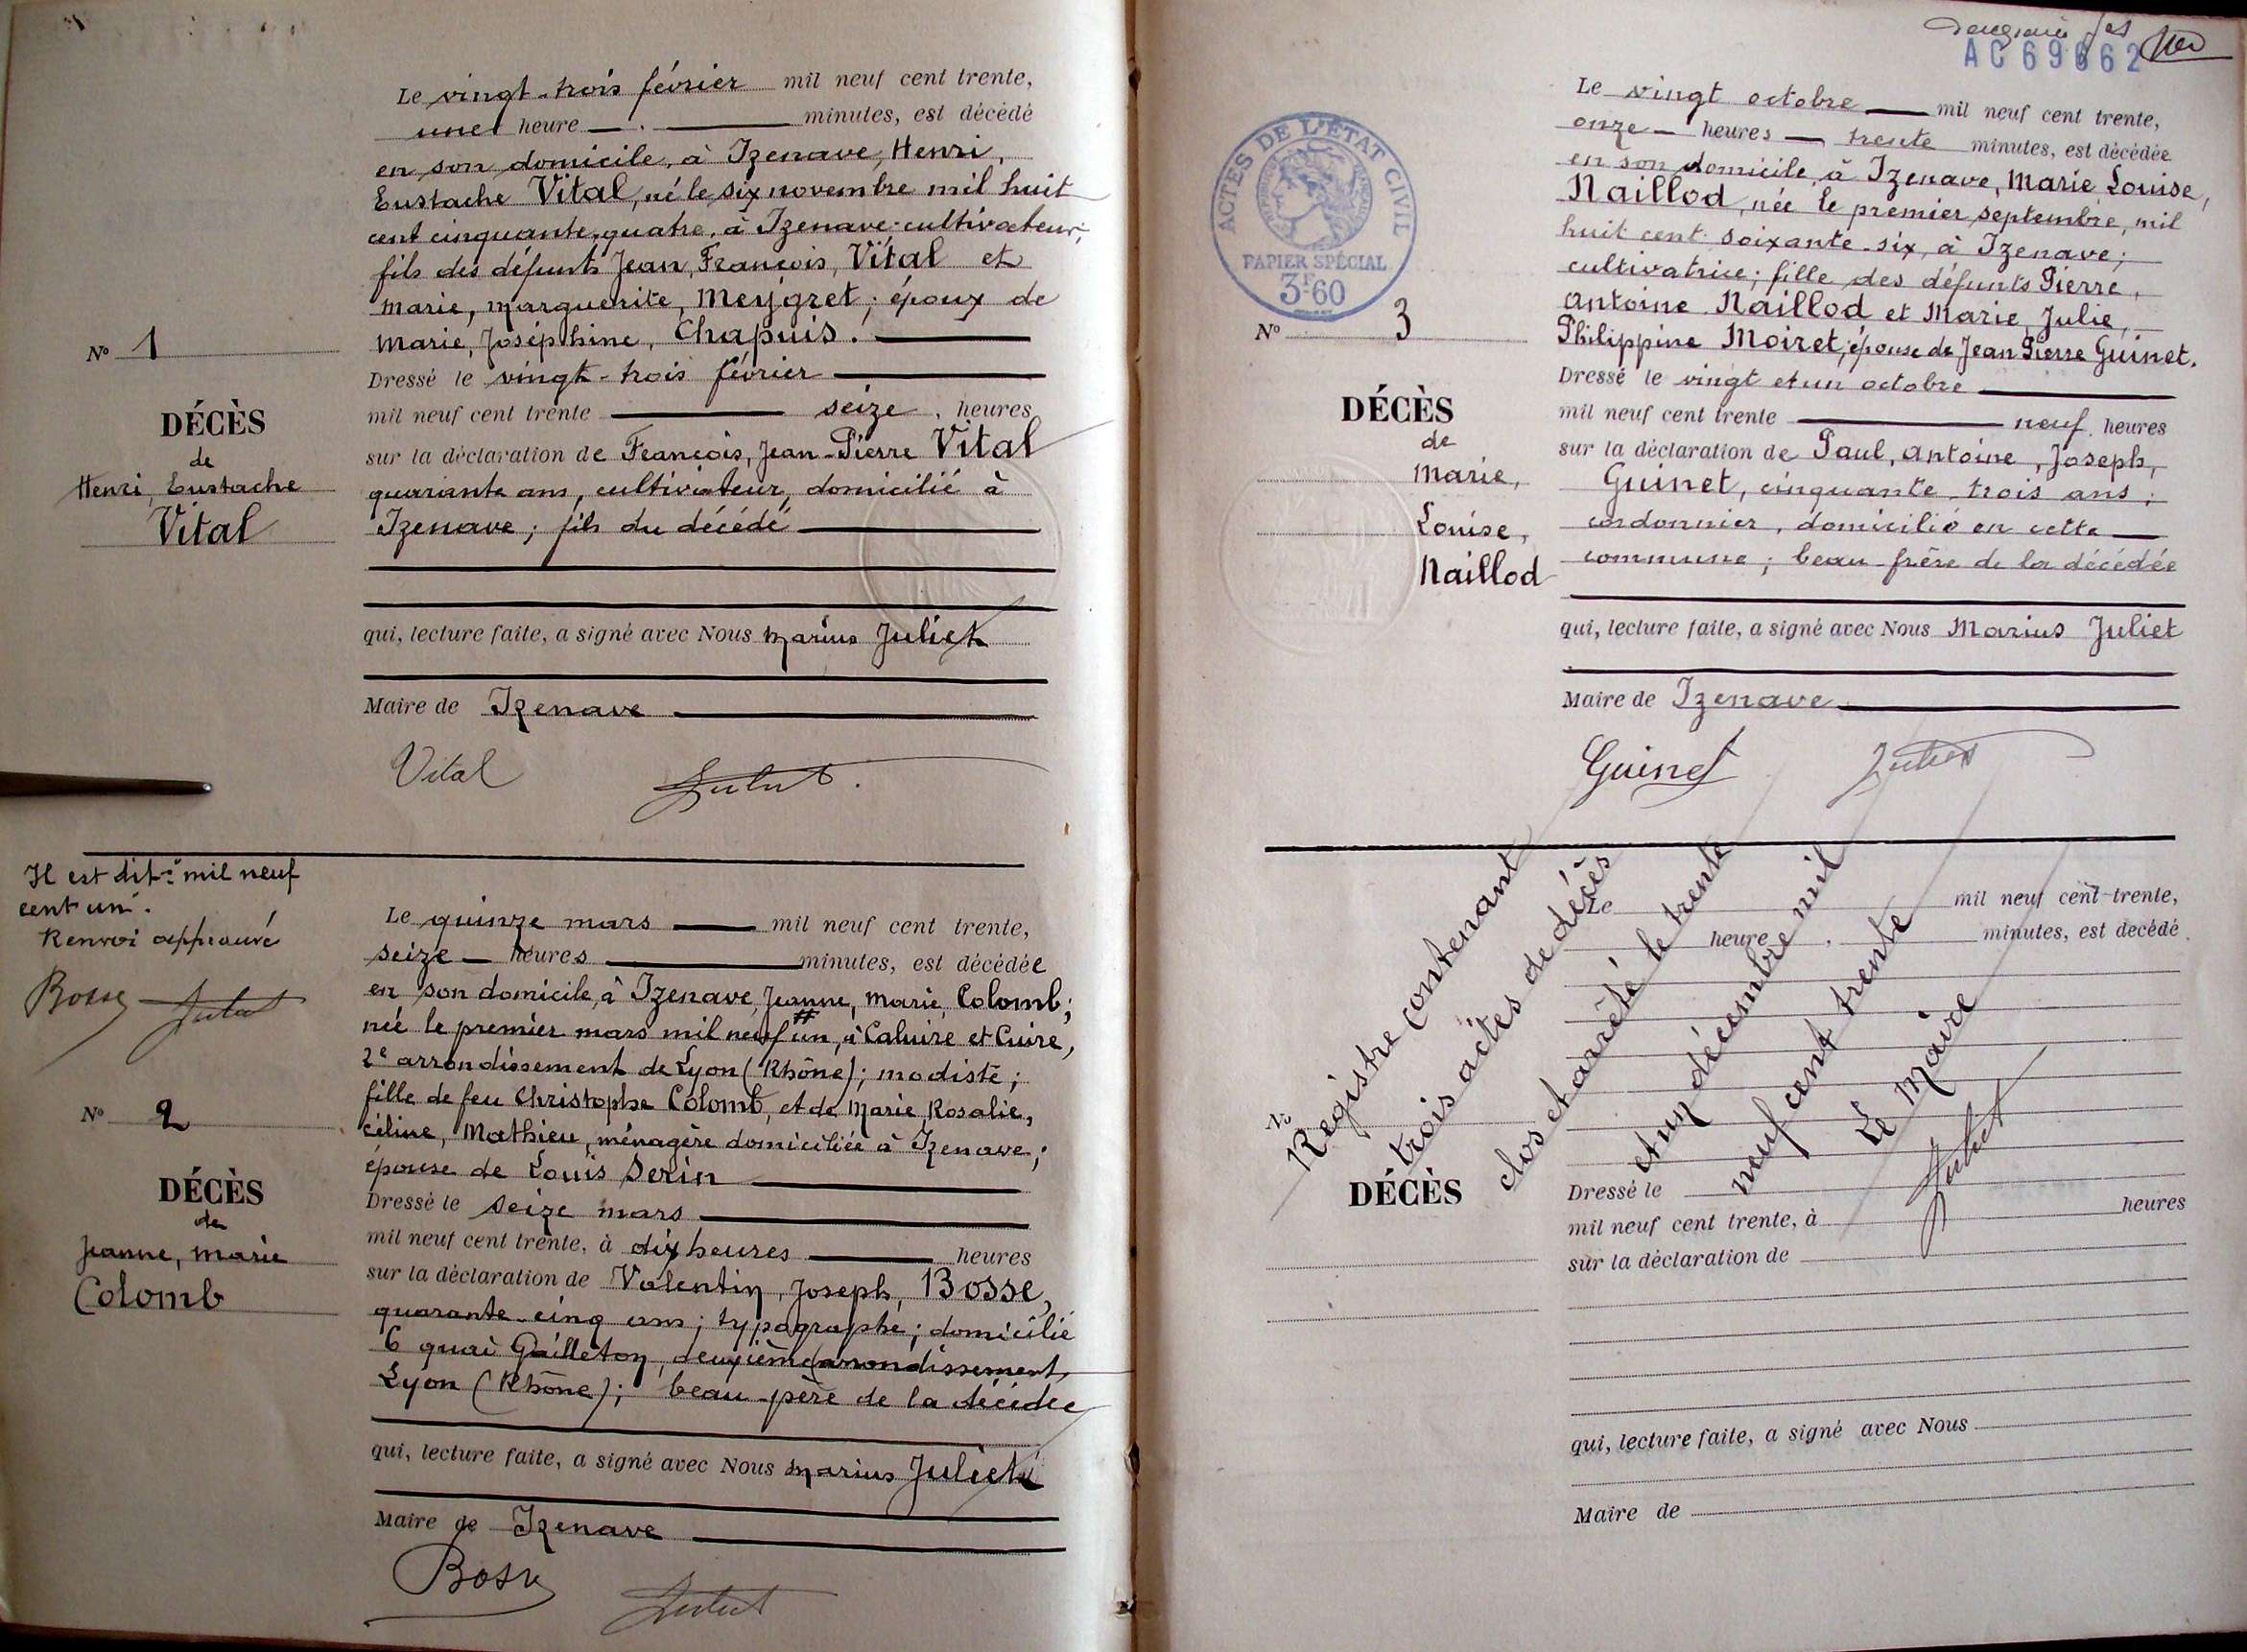 Le vingt-trois février mil neuf cent trente,
une heure — . — minutes, est décédé
en son domicile, à Izenave, Henri,
Eustache Vital, né le six novembre mil huit
cent cinquante-quatre, à Izenave; cultivateur;
fils des défunts Jean, François, Vital et
Marie, Marguerite, Meygret; époux de
Marie, Joséphine, Chapuis. —
N° 1
Dressé le vingt-trois février —
mil neuf cent trente — seize, heures
DÉCÈS
de
Henri, Eustache
Vital
sur la déclaration de François, Jean-Pierre Vital
quarante ans, cultivateur, domicilié à
Izenave; fils du décédé —
qui, lecture faite, a signé avec Nous Marius Juliet
Maire de Izenave —
Vital Juliet
Il est dit: "mil neuf
cent un".
Renvoi approuvé
Bosse Juliet
Le quinze mars — mil neuf cent trente,
seize — heures — minutes, est décédée
en son domicile, à Izenave, Jeanne, Marie, Colomb;
née le premier mars mil neuf # un, à Caluire et Cuire,
2e arrondissement de Lyon (Rhône); modiste;
fille de feu Christophe Colomb, et de Marie, Rosalie,
Céline, Mathieu, ménagère domiciliée à Izenave;
épouse de Louis Serin —
N° 2
DÉCÈS
de
Jeanne, Marie
Colomb
Dressé le seize mars —
mil neuf cent trente, à dix heures — heures
sur la déclaration de Valentin, Joseph, Bosse,
quarante-cinq ans; typographe; domicilié
6 quai Gailleton, deuxième arrondissement,
Lyon (Rhône); beau-père de la décédée
qui, lecture faite, a signé avec Nous Marius Juliet
Maire de Izenave —
Bosse Juliet
AC 69662
ACTES DE L'ÉTAT CIVIL
PAPIER SPÉCIAL
3F60
Le vingt octobre — mil neuf cent trente,
onze — heures — trente minutes, est décédée
en son domicile, à Izenave, Marie Louise,
Naillod, née le premier septembre, mil
huit cent soixante-six, à Izenave;
cultivatrice; fille des défunts Pierre,
Antoine Naillod et Marie, Julie, —
Philippine Moiret; épouse de Jean Pierre Guinet.
N° 3
DÉCÈS
de
Marie,
Louise,
Naillod
Dressé le vingt et un octobre —
mil neuf cent trente — neuf, heures
sur la déclaration de Paul, Antoine, Joseph,
Guinet, cinquante-trois ans;
cordonnier, domicilié en cette —
commune; beau-frère de la décédée
qui, lecture faite, a signé avec Nous Marius Juliet
Maire de Izenave —
Guinet Juliet
Registre contenant
trois actes de décès
clos et arrêté le trente
et un décembre mil
neuf cent trente
Le Maire
Juliet
Le mil neuf cent trente,
heure , minutes, est décédé
N°
DÉCÈS
Dressé le
mil neuf cent trente, à heures
sur la déclaration de
qui, lecture faite, a signé avec Nous
Maire de